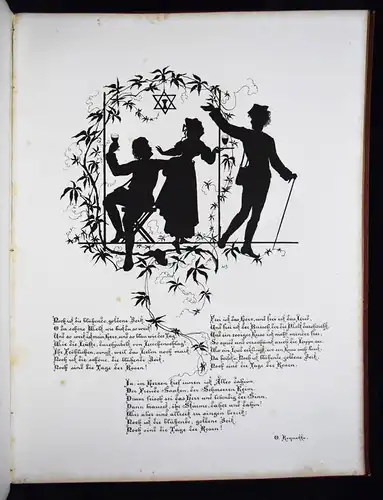 Noch ist die blühende, goldene Zeit,
O du schöne Welt, wie bist du so weit!
Und so weit ist mein Herz, und so blau wie der Tag,
Wie die Lüfte, durchjubelt von Lerchenschlag!
Ihr Fröhlichen, singt, weil das Leben noch mait:
Noch ist die schöne, die blühende Zeit,
Noch sind die Tage der Rosen!
Frei ist das Herz, und frei ist das Lied,
Und frei ist der Bursch, der die Welt durchzieht,
Und ein rosiger Kuss ist nicht minder frei,
So spröd und verschämt auch die Lippe sei.
Wo ein Lied erklingt, wo ein Kuss sich beut,
Da heisst's: Noch ist blühende, goldene Zeit,
Noch sind die Tage der Rosen!
Ja, im Herzen tief innen ist Alles daheim,
Der Freude Saaten, der Schmerzen Keim.
Drum frisch sei das Herz und lebendig der Sinn,
Dann brauset, ihr Stürme, daher und dahin!
Wir aber sind allzeit zu singen bereit:
Noch ist die blühende, goldene Zeit,
Noch sind die Tage der Rosen!
O. Roquette.